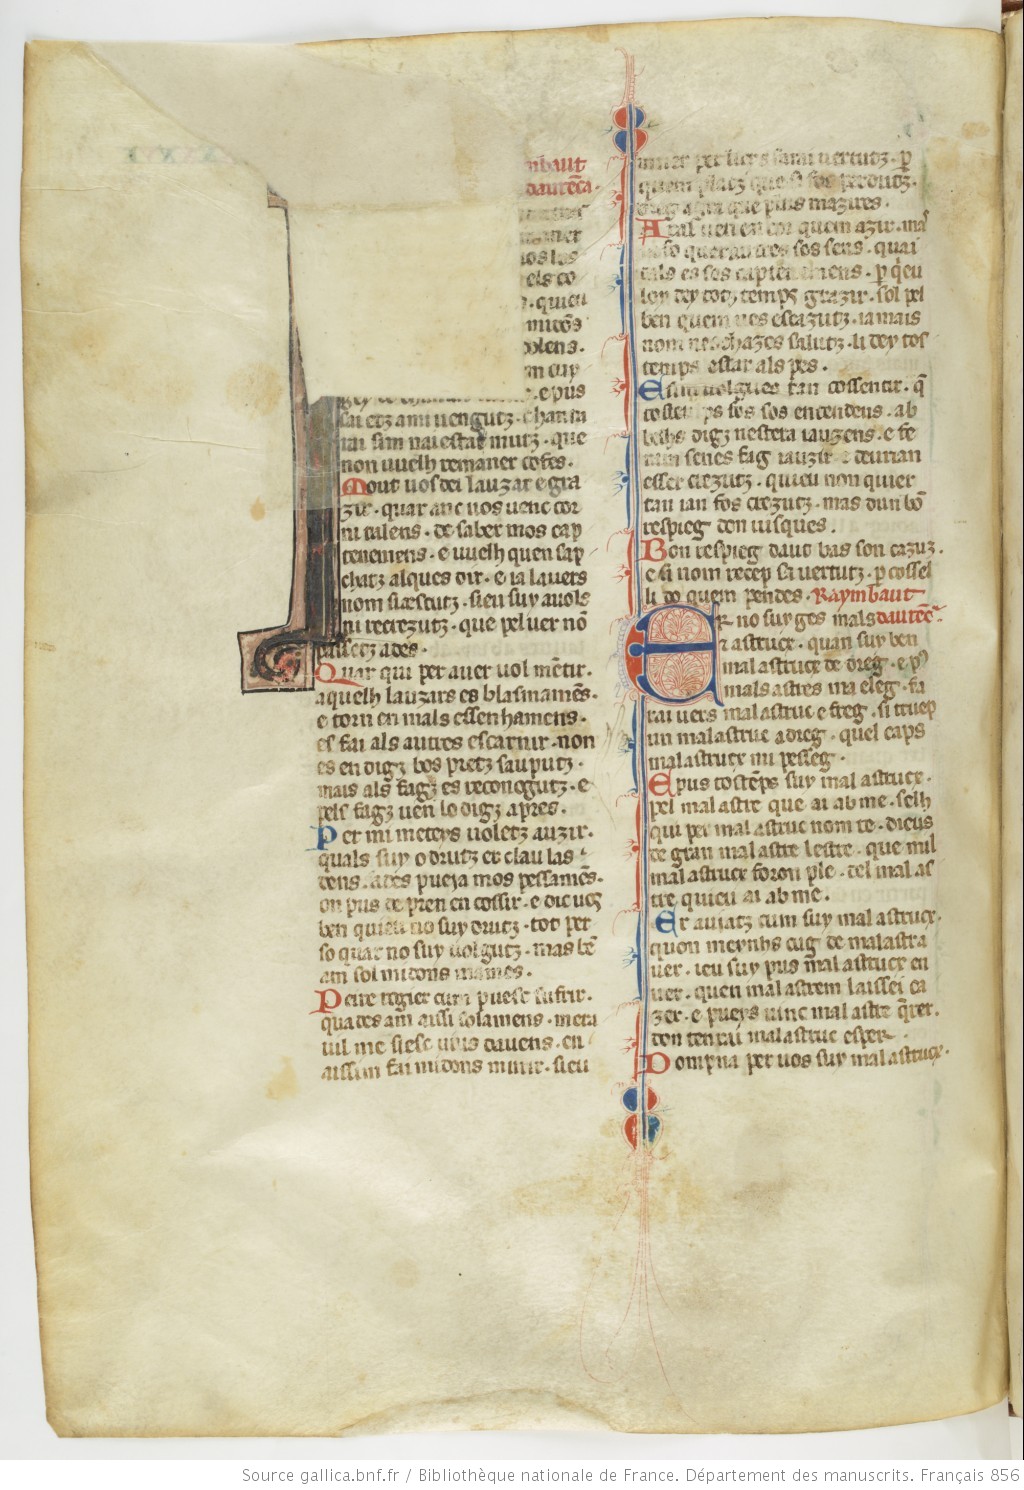 mbaut
daurenca.
maner
los las
els co
. quieu
midõs
volens.
m cup
. e pus
sai etz am uengutz. chanta
rai sim nai estat mutz. que
non vuelh remaner cofes.
Mout uos dei lauzar e gra
zir. quar anc uos uenc cor
ni talens. de saber mos cap
tenemens. e vuelh quen sap
chatz alques dir. e ia lauers
nom siaescutz. sieu suy auols
ni recrezutz. que pel uer nõ
passetz ades.
Quar qui per auer uol mẽtir.
aquelh lauzars es blasmamẽs.
e torn en mals essenhamens.
es fai als autres escarnir. non
es en digz bos pretz sauputz.
mais als fagz es reconogutz. e
pels fagz uen lo digz apres.
Per mi meteys uoletz auzir.
quals suy o drutz et clau las
dens. ades pueja mos pessamẽs.
on pus de pren en cossir. e dic uos
ben quieu no suy drutz. tot per
so quar no suy uolgutz. mas bẽ
am sol midons mames.
Peire rogier cum puesc sufrir.
quades am aussi solamens. mera
uil me
aissim fai midons murir. sieu
murer per liers sami uertutz. p̃
quem platz que si sos perdutz.
dreg agra que plus mazires.
Aras uen en cor quem azir. mas
so quer autres sos sens. quai
tals es sos capte nemens. p̃ qieu
loy dey totz temps grazir. sol pel
ben quem nes escazutz. ia mais
nom nechazes salutz. li dey tos
temps estar als pes.
Esim uolgues tan cossentir. q̃
tostemps sos sos entendens. ab
belhs digz nestera iauzens. e fe
ram senes fag iauzir e deurian
esser crezutz. quieu non quier
tan ian fos crezutz. mas dun bõ
respieg don uisques.
Bon respieg daut bas son cazuz.
e si nom recep sa uertutz. p cossel
li do quem pendes. Raymbaut
ER no suy ges mals daurẽcᵃ.
et astrucx. quan suy ben
malastrucx de dreg. e pᵒˢ
mals astres ma eleg. fa
rai uers malastruc e freg. si truep
un malastruc adieg. quel caps
malastrucx mi pesseg.
E pus tostẽps suy malastrucx.
pel mal astre que ai ab me. selh
qui per malastruc nom te. dieus
de gran mal astre lestre. que mil
malastrucx foron ple. del mal as
tre quieu ai ab me.
Er auiatz cum suy mal astrucx.
quon meynhs cug de malastra
uer. ieu suy pus malastrucx en
uer. quen mal astrem laissei ca
zer. e pueys uinc mal astre q̃rer.
don tenrai malastruc esper
Dompna per uos suy malastrucx.
Source gallica.bnf.fr / Bibliothèque nationale de France. Département des manuscrits. Français 856